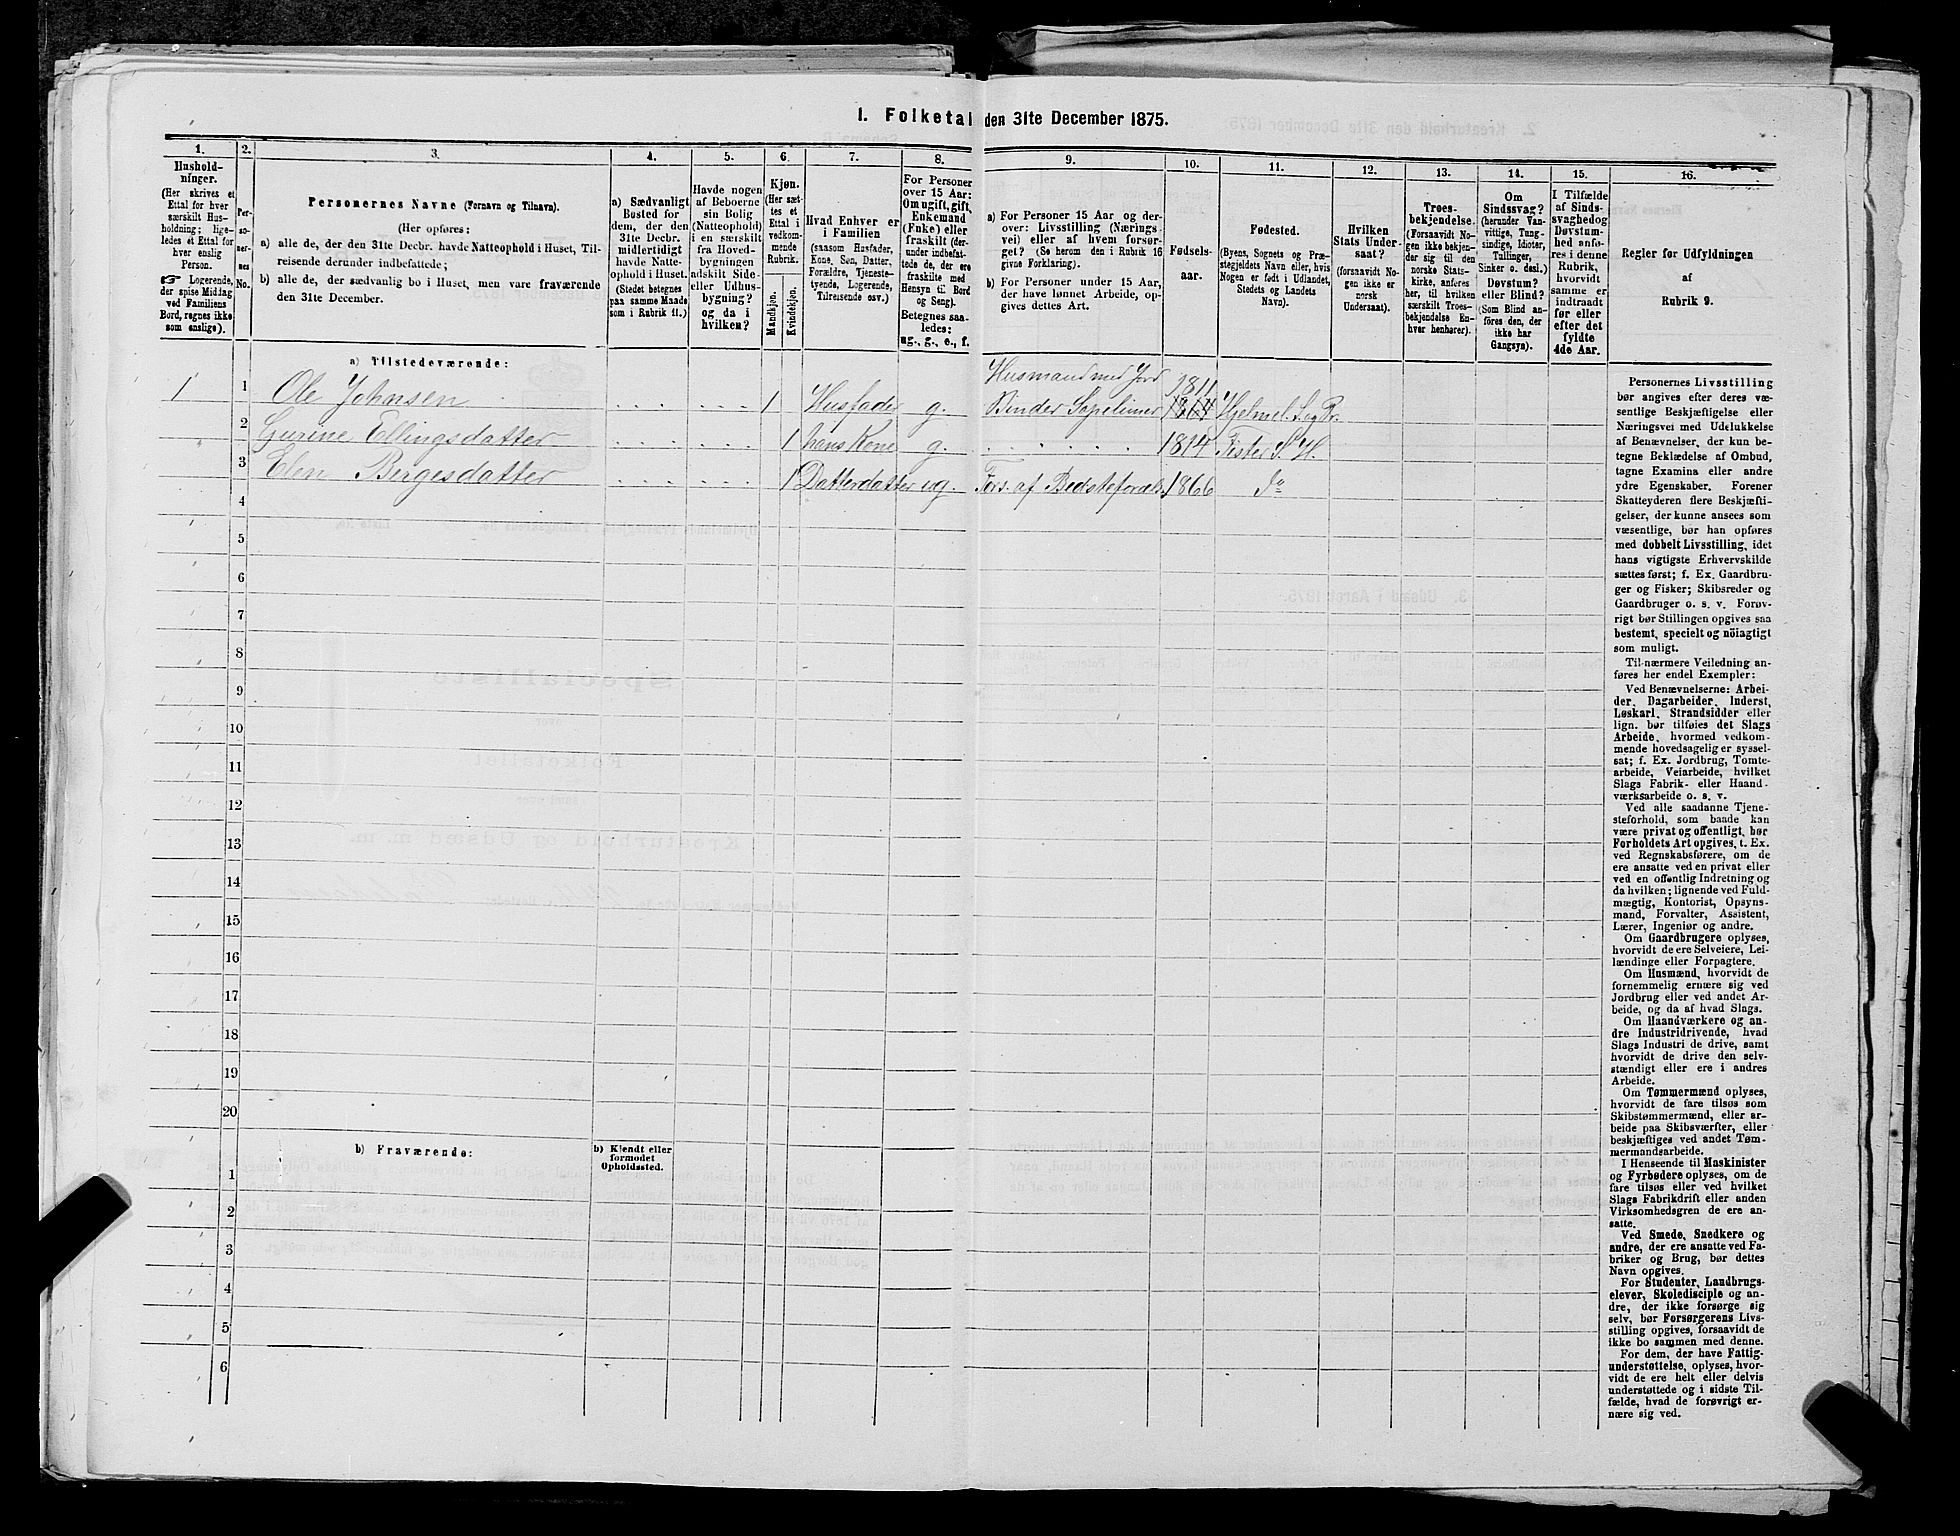 1. Folketal den 31te December 1875.
1.
Hushold-
ninger.
(Her skrives et
Ettal for hver
særskilt Hus-
holdning; lige-
ledes et Ettal for
hver enslig
Person.
☞ Logerende,
der spise Middag
ved Familiens
Bord, regnes ikke
som enslige).
2.
Per-
so-
ner-
nes
No.
3.
Personernes Navne (Fornavn og Tilnavn).
(Her opføres:
a) alle de, der den 31te Decbr. havde Natteophold i Huset, Til-
reisende derunder indbefattede;
b) alle de, der sædvanlig bo i Huset, men vare fraværende
den 31te December.
4.
a) Sædvanligt
Bosted for
dem, der den
31te Decbr.
midlertidigt
havde Natte-
ophold i Huset.
(Stedet betegnes
paa samme Maade
som i Rubrik 11.)
5.
Havde nogen
af Beboerne
sin Bolig
(Natteophold)
i en særskilt
fra Hoved-
bygningen
adskilt Side-
eller Udhus-
bygning?
og da i
hvilken?
6.
Kjøn.
(Her sæt-
tes et
Ettal i
vedkom-
mende
Rubrik.
Mandkjøn.
Kvindekjøn.
7.
Hvad Enhver er
i Familien
(saasom Husfader,
Kone, Søn, Datter,
Forældre, Tjeneste-
tyende, Logerende,
Tilreisende osv.)
8.
For Personer
over 15 Aar:
Om ugift, gift,
Enkemand
(Enke) eller
fraskilt (der-
under indbefat-
tede de, der ere
fraskilte med
Hensyn til Bord
og Seng).
Betegnes saa-
ledes:
ug., g., e., f.
9.
a) For Personer 15 Aar og der-
over: Livsstilling (Nærings-
vei) eller af hvem forsør-
get? (Se herom den i Rubrik 16
givne Forklaring).
b) For Personer under 15 Aar,
der have lønnet Arbeide, op-
gives dettes Art.
10.
Fødsels-
aar.
11.
Fødested.
(Byens, Sognets og Præ-
stegjeldets Navn eller, hvis
Nogen er født i Udlandet,
Stedets og Landets
Navn).
12.
Hvilken
Stats Under-
saat?
(forsaavidt No-
gen ikke er
norsk
Undersaat).
13.
Troes-
bekjendelse.
(Forsaavidt No-
gen ikke bekjen-
der sig til den
norske Stats-
kirke, anføres
her, til hvilken
særskilt Troes-
bekjendelse En-
hver henhører).
14.
Om
Sindssvag?
(herunder Van-
vittige, Tung-
sindige, Idioter,
Tullinger,
Sinker o. desl.)
Døvstum?
eller Blind?
(Som Blind an-
føres den, der
ikke har
Gangsyn).
15.
I Tilfælde
af Sinds-
svaghed og
Døvstum-
hed anfø-
res i denne
Rubrik,
hvorvidt
samme er
indtraadt
før eller
efter det
fyldte
4de Aar.
16.
Regler for Udfyldningen
af
Rubrik 9.
a) Tilstedeværende:
Husmand med Jord
1 1 Ole Johnsen 1 Husfader g. Binder 1811 Hjelmel. S og Pr.
" 2 Gurine Ellingsdatter 1 hans Kone g. 1814 Fister S. H.
3 Elen Bergesdatter 1 Datterdatter ug. Fors. af Bedsteforæld. 1866 do
4
5
6
7
8
9
10
11
12
13
14
15
16
17
18
19
20
b) Fraværende:
b) Kjendt eller
formodet
Opholdssted.
1
2
3
4
5
6
Personernes Livsstilling
bør angives efter deres væ-
sentlige Beskjæftigelse eller
Næringsvei med Udelukkelse
af Benævnelser, der kun be-
tegne Beklædelse af Ombud,
tagne Examina eller andre
ydre Egenskaber. Forener
Skatteyderen flere Beskjæfti-
gelser, der kunne ansees som
væsentlige, bør han opføres
med dobbelt Livsstilling, idet
hans vigtigste Erhvervskilde
sættes først; f. Ex. Gaardbru-
ger og Fisker; Skibsreder og
Gaardbruger o. s. v. Forøv-
rigt bør Stillingen opgives saa
bestemt, specielt og nöiagtigt
som muligt.
Til nærmere Veiledning an-
føres her endel Exempler:
Ved Benævnelserne: Arbei-
der, Dagarbeider, Inderst,
Løskarl, Strandsidder eller
lign. bør tilføies det Slags
Arbeide, hvormed vedkom-
mende hovedsagelig er syssel-
sat; f. Ex. Jordbrug, Tomte-
arbeide, Veiarbeide, hvilket
Slags Fabrik- eller Haand-
værksarbeide o. s. v.
Ved alle saadanne Tjene-
steforhold, som baade kan
være privat og offentligt, bør
Forholdets Art opgives, t. Ex.
ved Regnskabsførere, om de
ere ansatte ved en privat eller
ved en offentlig Indretning og
da hvilken; lignende ved Fuld-
mægtig, Kontorist, Opsyns-
mand, Forvalter, Assistent,
Lærer, Ingeniør og andre.
Om Gaardbrugere oplyses,
hvorvidt de ere Selveiere, Lei-
lændinge eller Forpagtere.
Om Husmænd, hvorvidt de
fornemmelig ernære sig ved
Jordbrug eller ved andet Ar-
beide, og da af hvad Slags.
Om Haandværkere og an-
dre Industridrivende, hvad
Slags Industri de drive, samt
hvorvidt de drive den selv-
stændigt eller ere i andres
Arbeide.
Om Tømmermænd oplyses,
hvorvidt de fare tilsøs som
Skibstømmermænd, eller ar-
beide paa Skibsværfter, eller
beskjæftiges ved andet Tøm-
mermandsarbeide.
I Henseende til Maskinister
og Fyrbødere oplyses, om de
fare tilsøs eller ved hvilket
Slags Fabrikdrift eller anden
Virksomhedsgren de ere an-
satte.
Ved Smede, Snedkere og
andre, der ere ansatte ved Fa-
briker og Brug, bør dettes
Navn opgives.
For Studenter, Landbrugs-
elever, Skoledisciple og an-
dre, der ikke forsørge sig
selv, bør Forsørgerens Livs-
stilling opgives, forsaavidt de
ikke bo sammen med denne.
For dem, der have Fattig-
understøttelse, oplyses, hvor-
vidt de ere helt eller delvis
understøttede og i sidste Til-
fælde, hvad de forøvrigt er-
nære sig ved.